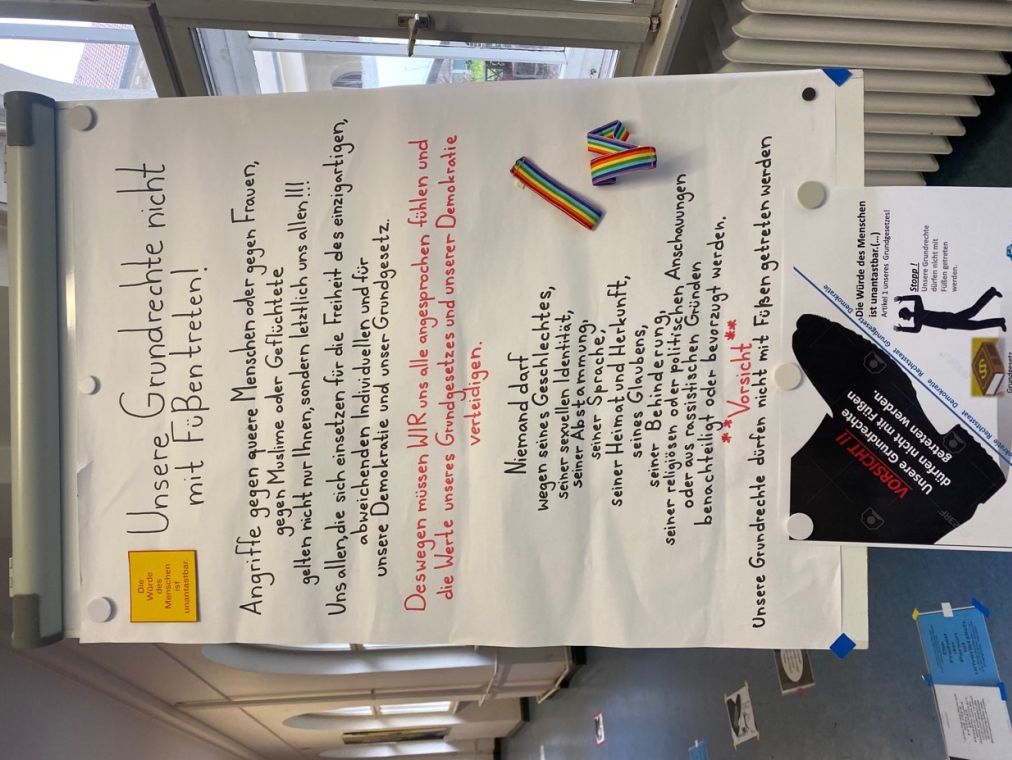 Unsere Grundrechte nicht
mit Füßen treten!
Die
Würde
des
Menschen
ist
unantastbar.
Angriffe gegen queere Menschen oder gegen Frauen,
gegen Muslime oder Geflüchtete
gelten nicht nur Ihnen, sondern letztlich uns allen!!!
Uns allen, die sich einsetzen für die Freiheit des einzigartigen,
abweichenden Individuellen und für
unsere Demokratie und unser Grundgesetz.
Deswegen müssen WIR uns alle angesprochen fühlen und
die Werte unseres Grundgesetzes und unserer Demokratie
verteidigen.
Niemand darf
wegen seines Geschlechtes,
seiner sexuellen Identität,
seiner Abstammung,
seiner Sprache,
seiner Heimat und Herkunft,
seines Glaubens,
seiner Behinderung,
seiner religiösen oder politischen Anschauungen
oder aus rassistischen Gründen
benachteiligt oder bevorzugt werden.
**Vorsicht**
Unsere Grundrechte dürfen nicht mit Füßen getreten werden
Die Würde des Menschen
ist unantastbar.(...)
Artikel 1 unseres Grundgesetzes!
Stopp!
Unsere Grundrechte
dürfen nicht mit
Füßen getreten
werden.
Demokratie Rechtsstaat Grundgesetz Demokratie
Rechtsstaat Demokratie
VORSICHT!!
Unsere Grundrechte
dürfen nicht mit Füßen
getreten werden.
Grundgesetz